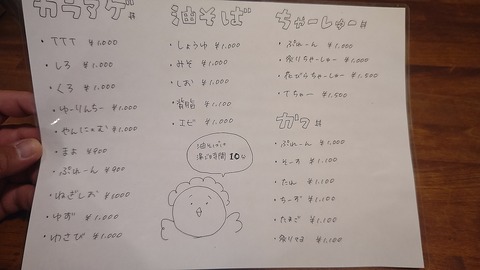 カラアゲ丼
・TTT ¥1,000
・しろ ¥1,000
・くろ ¥1,000
・ゆーりんちー ¥1,000
・やんにょむ ¥1,000
・まよ ¥900
・ぷれーん ¥900
・ねぎしお ¥1000
・ゆず ¥1,000
・わさび ¥1,000
油そば
・しょうゆ ¥1,000
・みそ ¥1,000
・しお ¥1,000
・背脂 ¥1,100
・エビ ¥1,100
油そばの
湯で時間 10分
ちゃーしゅー丼
・ぷれーん ¥1,000
・炙りちゃーしゅー ¥1,000
・花びらちゃーしゅー ¥1,500
・てちゃー ¥1,500
カツ丼
・ぷれーん ¥1,000
・そーす ¥1,100
・たれ ¥1,100
・ちーず ¥1,100
・たまご ¥1,100
・炙りマヨ ¥1,100